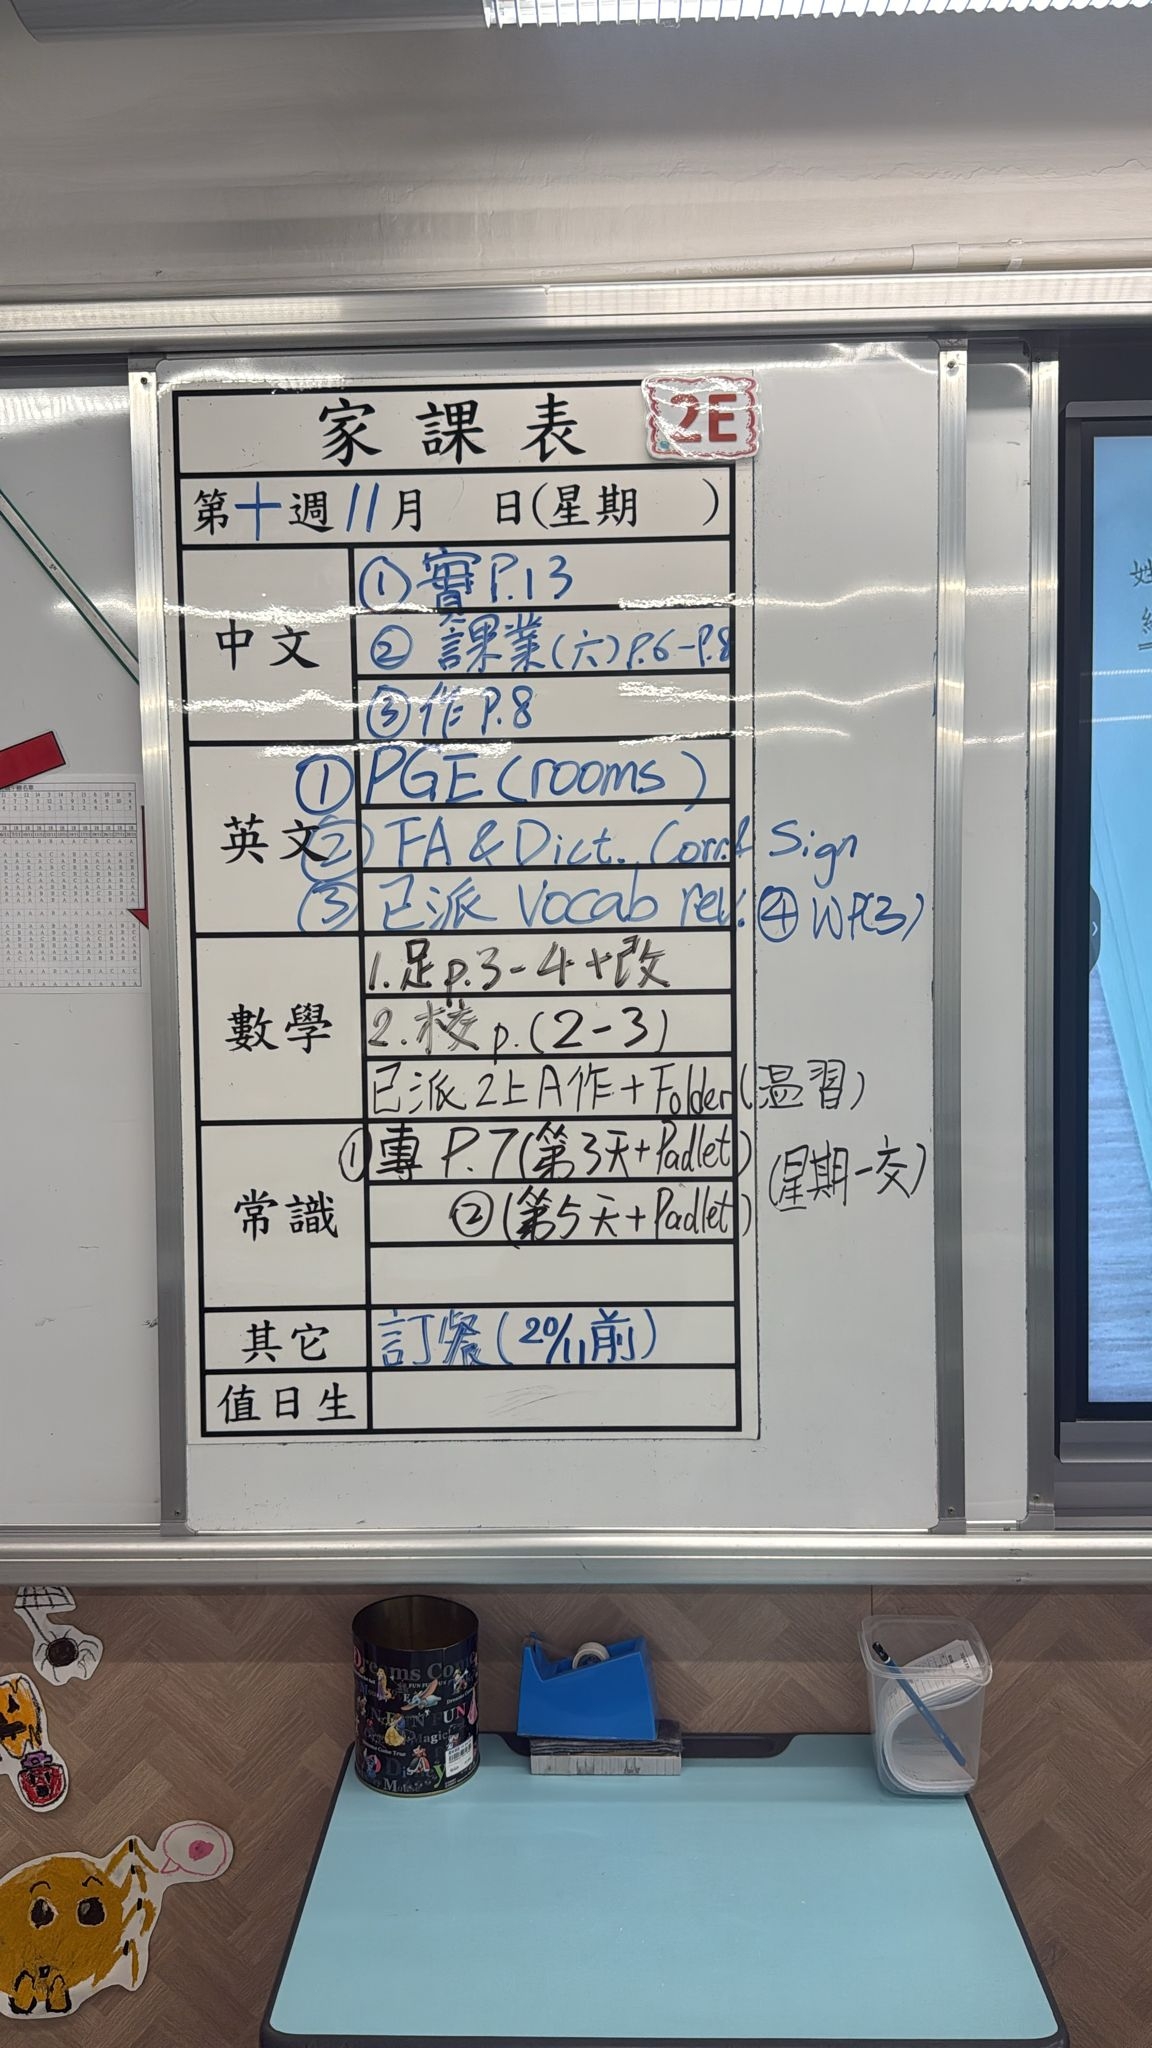 家課表 2E
第十週11月 日(星期 )
中文
①實P.13
② 課業(六)P.6-P.8
③作P.8
英文
①PGE(rooms)
②FA & Dict. Corr.& Sign
③已派 Vocab rev. ④WP(3)
數學
1.足p.3-4+改
2.校p.(2-3)
已派2上A作+Folder(溫習)
常識
①專P.7(第3天+Padlet)
②(第5天+Padlet)
(星期一交)
其它
訂餐(20/11前)
值日生